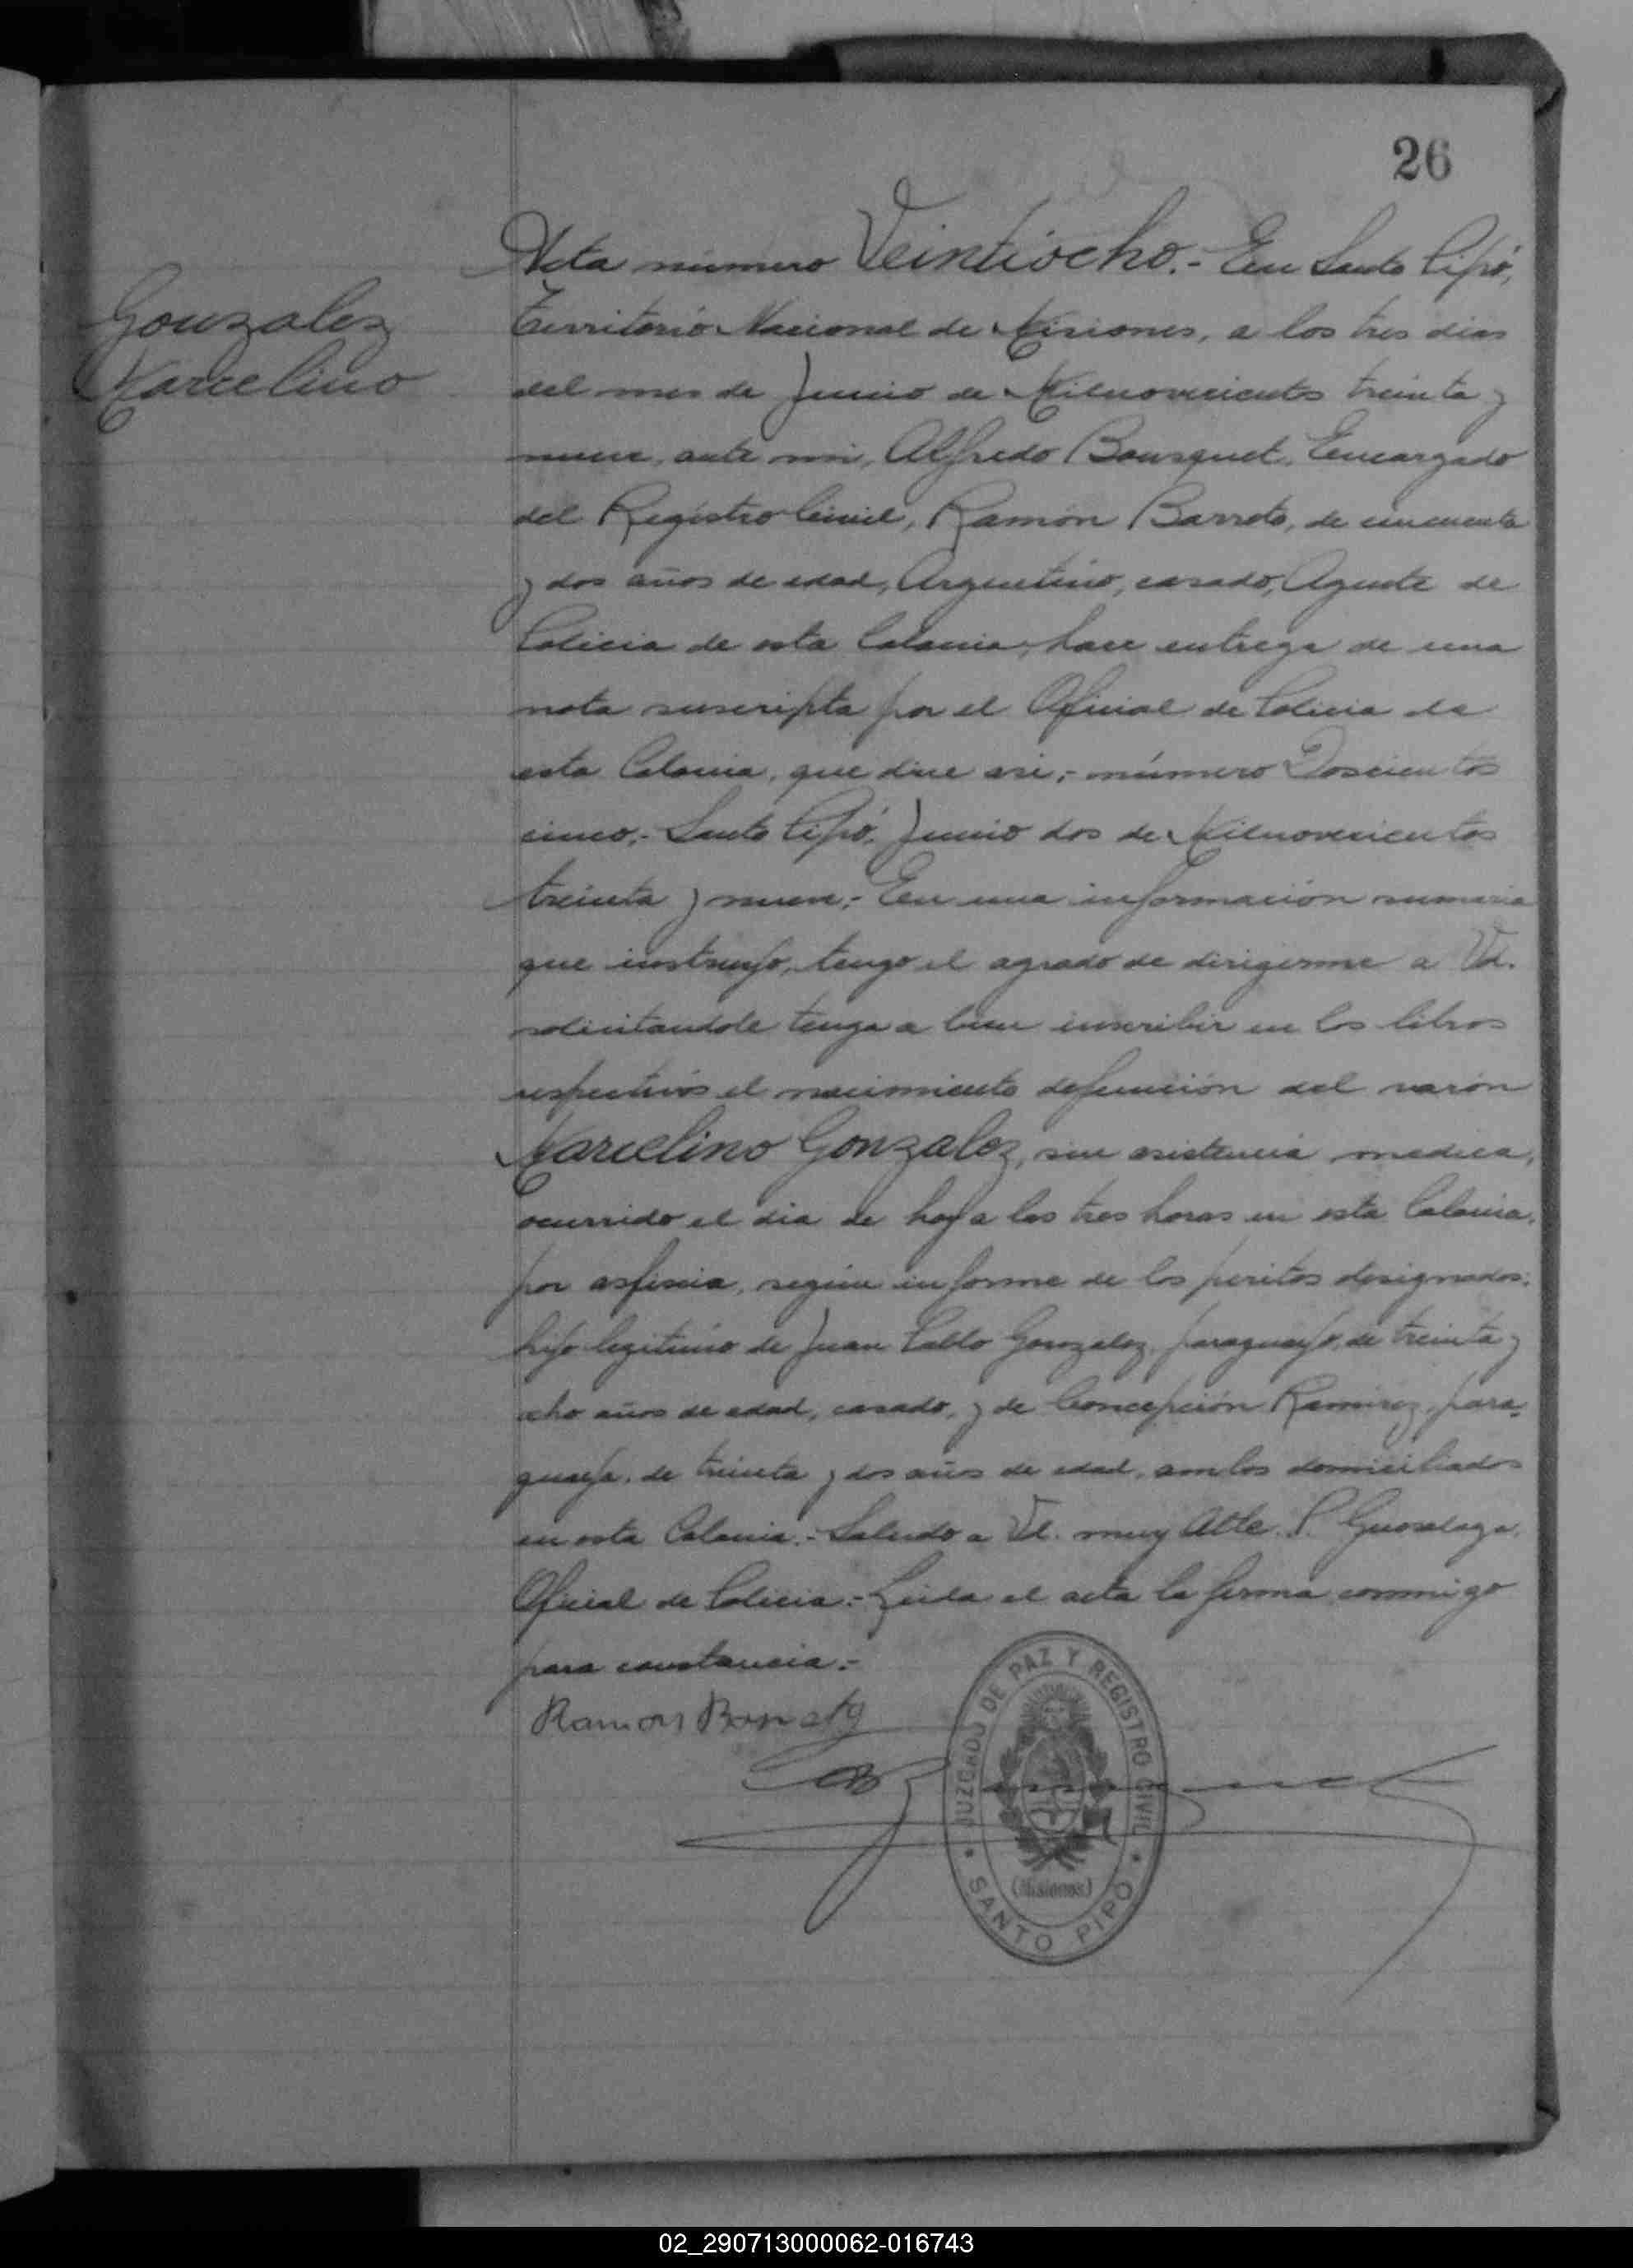 26
Gonzalez
Marcelino
Acta número Veintiocho.- En Santo Pipó,
Territorio Nacional de Misiones, a los tres dias
del mes de Junio de Milnovecientos treinta y
nueve, ante mi, Alfredo Bousquet, Encargado
del Registro Civil, Ramón Barreto, de cincuenta
y dos años de edad, Argentino, casado, Agente de
Policia de esta Colonia, hace entrega de una
nota suscripta por el Oficial de Policia de
esta Colonia, que dice asi;- número Doscientos
cinco;- Santo Pipó, Junio dos de Milnovecientos
treinta y nueve;- En una información sumaria
que instruyo, tengo el agrado de dirigirme a Vd.
solicitandole tenga a bien inscribir en los libros
respectivos el nacimiento defunción del varón
Marcelino Gonzalez, sin asistencia medica,
ocurrido el dia de hoy a las tres horas en esta Colonia,
por asfixia, según informe de los peritos designados;
hijo legitimo de Juan Pablo Gonzalez, paraguayo, de treinta y
ocho años de edad, casado, y de Concepción Ramirez, para-
guaya, de treinta y dos años de edad, ambos domiciliados
en esta Colonia.- Saludo a Vd. muy Atte. P.
Oficial de Policia.- Leida el acta la firma conmigo
para constancia.-
Ramon Barreto
JUZGADO DE PAZ Y REGISTRO CIVIL
(Misiones)
SANTO PIPÓ
02_290713000062-016743